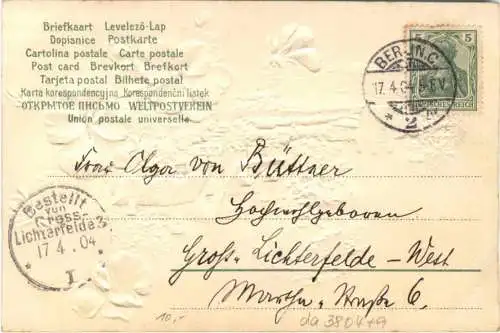 Briefkaart Levelező-Lap
Dopisnice Postkarte
Cartolina postale Carte postale
Post card Brevkort Brefkort
Tarjeta postal Bilhete postal
Karta korespondencyjna Korespondenční lístek
ОТКРЫТОЕ ПИСЬМО WELTPOSTVEREIN
Union postale universelle
5 5
BERLIN, C.
17.4.04
* 2
Frau Olga von Büttner
Hochwohlgeboren
Groß-Lichterfelde-West
Martha-Straße 6.
Bestellt
vom
Gross-
Lichterfelde 3
17 4.04
* I *
10,-